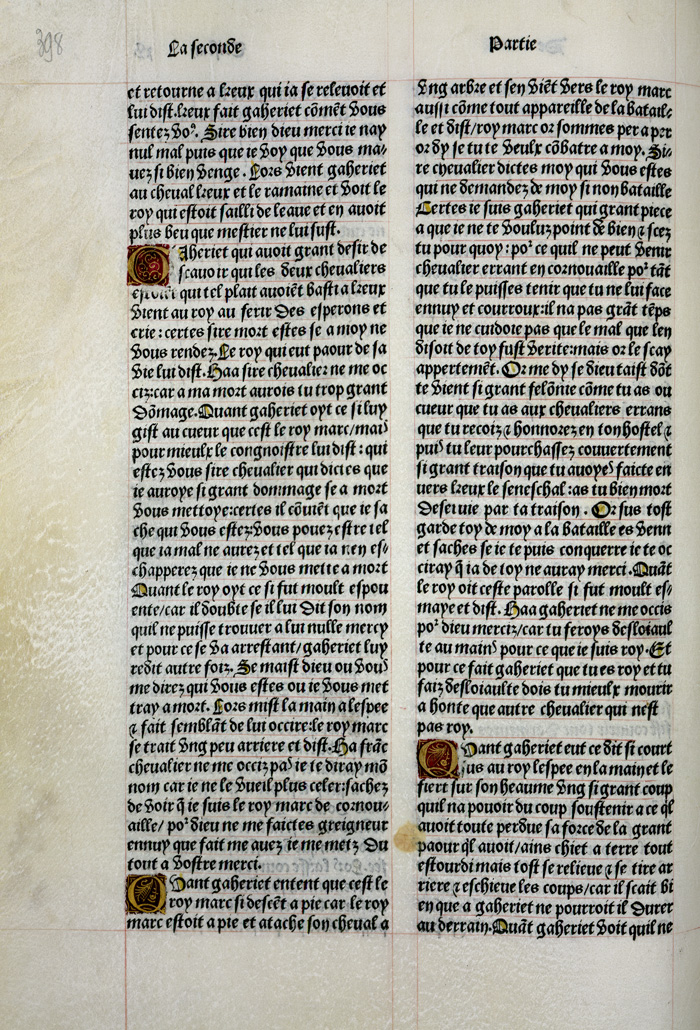 398
La seconde
Partie
et retourne a kreux qui ia se relevoit et
lui dist.kreux fait gaheriet cōmēt vous
sentez voꝰ. Sire bien dieu merci ie nay
nul mal puis que ie voy que vous ma/
vez si bien venge. Lors vient gaheriet
au cheval kreux et le ramaine et voit le
roy qui estoit sailli de leaue et en avoit
plus beu que mestier ne lui fust.
Gaheriet qui avoit grant desir de
scavoir qui les deux chevaliers
estoiēt qui tel plait avoiēt basti a kreux
vient au roy au ferir des esperons et
crie: certes sire mort estes se a moy ne
vous rendez. Le roy qui eut paour de sa
vie lui dist. Haa sire chevalier ne me oc
ciz: car a ma mort aurois tu trop grant
dōmage. Quant gaheriet oyt ce si luy
gist au cueur que cest le roy marc/mais
pour mieulx le congnoistre lui dist: qui
estez vous sire chevalier qui dictes que
ie auroye si grant dommage se a mort
vous mettoye: certes il cōuiēt que ie sa
che qui vous estez. vous pouez estre tel
que ia mal ne aurez et tel que ia nen es/
chapperez que ie ne vous mette a mort
Quant le roy oyt ce si fut moult espou
ente/car il doubte se il lui dit son nom
quil ne puisse trouuer a lui nulle mercy
et pour ce se va arrestant/gaheriet luy
redit autre foiz. Se maist dieu ou vous
me direz qui vous estes ou ie vous met
tray a mort. Lors mist la main a lespee
⁊ fait semblāt de lui occire: le roy marc
se trait vng peu arriere et dist. Ha frāc
chevalier ne me occiz pas ie te diray mō
nom car ie ne le vueil plus celer: sachez
de voir q̄ ie suis le roy marc de cornou/
aille/ poꝛ dieu ne me faictes greigneur
ennuy que fait me auez ie me metz du
tout a vostre merci.
Quant gaheriet entent que cest le
roy marc si descēt a pie car le roy
marc estoit a pie et atache son cheval a
vng arbre et sen viēt vers le roy marc
aussi cōme tout appareille de la batail/
le et dist/roy marc or sommes per a per
or dy se tu te veulx cōbatre a moy. Si/
re chevalier dictes moy qui vous estes
qui ne demandez de moy si non bataille
Certes ie suis gaheriet qui grant piece
a que ie ne te vouluz point de bien ⁊ scez
tu pour quoy: poꝛ ce quil ne peut venir
chevalier errant en cornouaille poꝛ tāt
que tu le puisses tenir que tu ne lui face
ennuy et courroux: il na pas grāt tēps
que ie ne cuidoie pas que le mal que len
disoit de toy fust verite: mais or le scay
appertemēt. Or me dy se dieu taist dōt
te vient si grant felōnie cōme tu as ou
cueur que tu as aux chevaliers errans
que tu recoiz ⁊ honnorez en ton hostel ⁊
puis tu leur pourchassez couvertement
si grant traison que tu avoyes faicte en
uers kreux le seneschal: as tu bien mort
deservie par ta traison. Or sus tost
garde toy de moy a la bataille es venu
et saches se ie te puis conquerre ie te oc
ciray q̄ ia de toy ne auray merci. Quāt
le roy oit ceste parolle si fut moult es/
maye et dist. Haa gaheriet ne me occis
poꝛ dieu merciz/car tu feroys desloiaul
te au mains pour ce que ie suis roy. Et
pour ce fait gaheriet que tu es roy et tu
faiz desloiaulte dois tu mieulx mourir
a honte que autre chevalier qui nest
pas roy.
Quant gaheriet eut ce dit si court
sus au roy lespee en la main et le
fiert sur son heaume vng si grant coup
quil na pouoir du coup soustenir a ce q̄l
avoit toute perdue sa force de la grant
paour q̄l avoit/ains chiet a terre tout
estourdi mais tost se relieve ⁊ se tire ar
riere ⁊ eschieve les coups/car il scait bi
en que a gaheriet ne pourroit il durer
au derrain. Quāt gaheriet voit quil ne